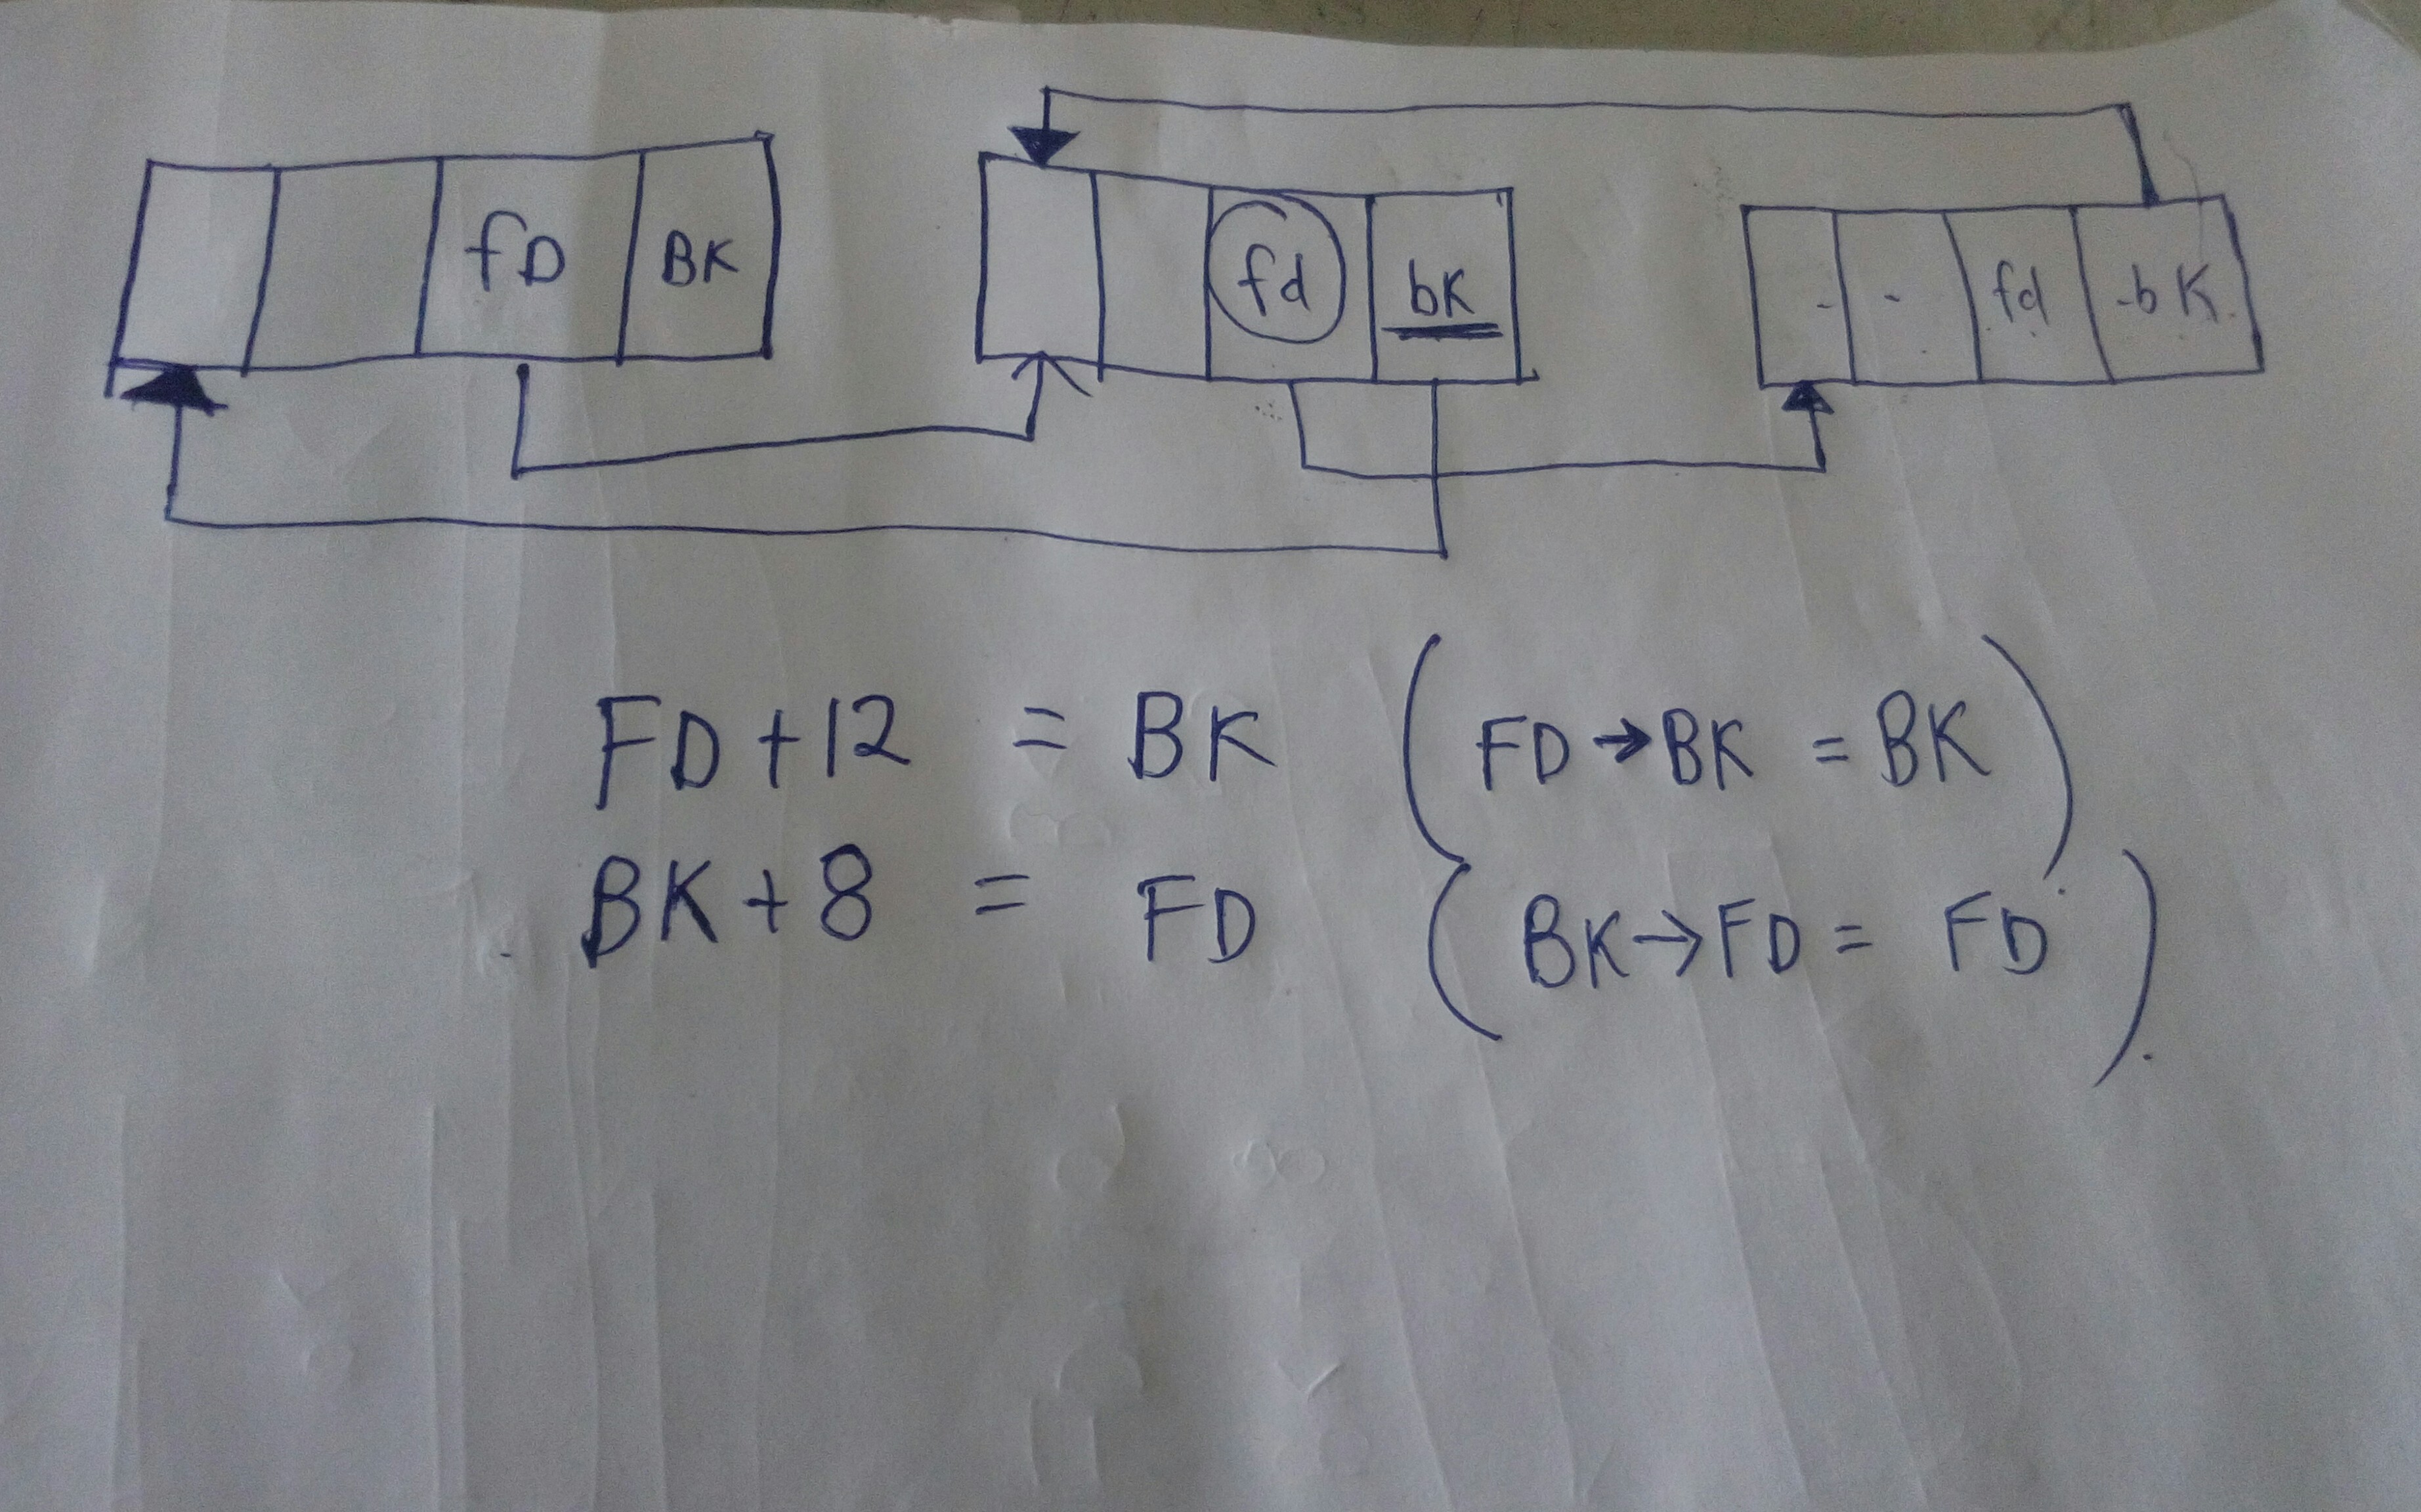 fD BK fd bK - - fd -bK.
FD+12 = BK (FD→BK = BK)
BK+8 = FD (BK→FD = FD).